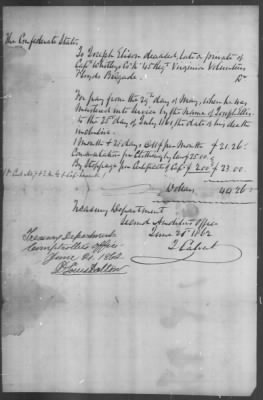 The Confederate States
To Joseph Elison deceased, late a private of
Capt Co. K 45 Regt Virginia Volunteers
Floyds Brigade Dr
For pay from the 29th day of May, when he was
mustered into service by the name of Joseph
to the 25th day of July 1861, the date of his death
inclusive.
1 Months & 26 days, @ $11 per Month $21.26
Commutation for Clothing 25.00
By Stoppage for 2.00 23.00
Dollars 44.26
Treasury Department
Second Auditors Office
June 20th 1862
Treasury Department
Comptrollers Office
June 20. 1862